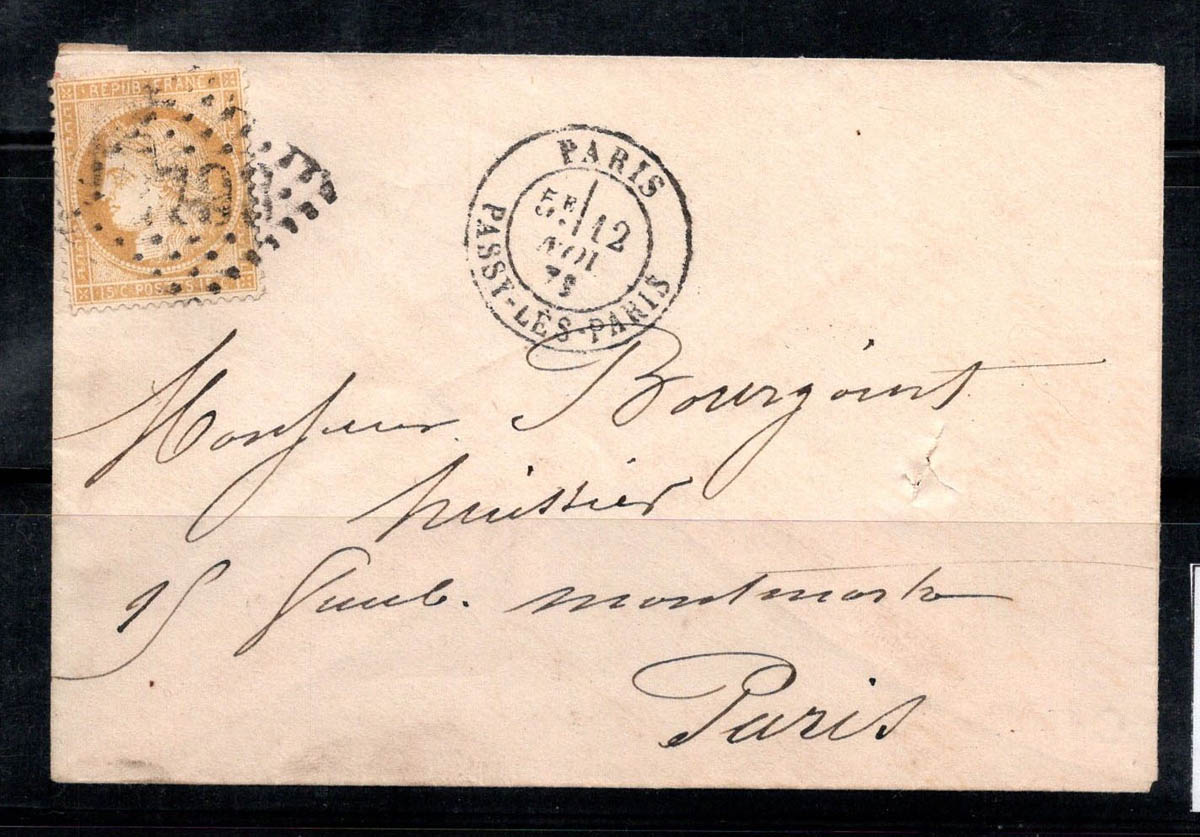 REPUB. FRANC.
15 C. POSTES 15 C.
PARIS
5E 12
NOV.
73
PASSY-LÈS-PARIS
Monsieur Bourgoint
huissier
15 Faub. montmartre
Paris